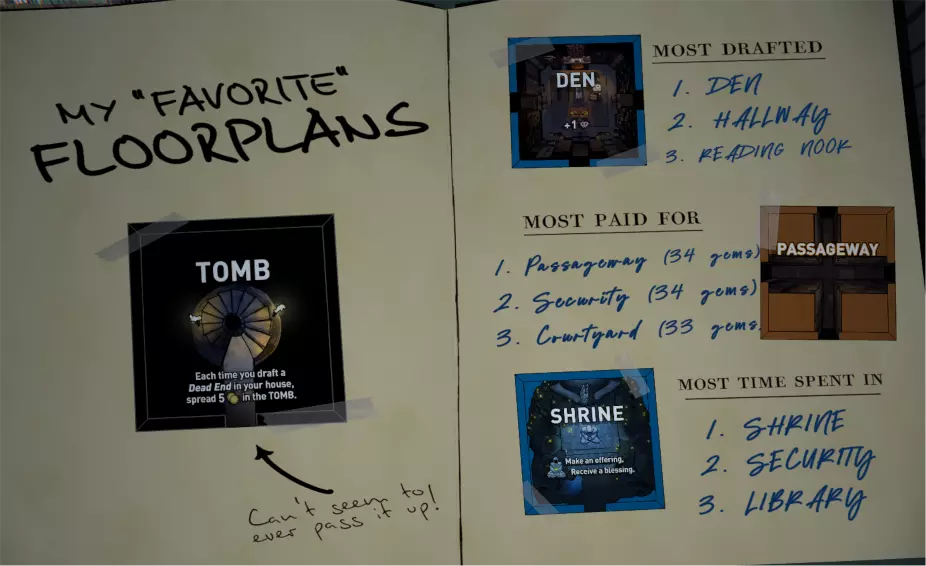 MY "FAVORITE"
FLOORPLANS
TOMB
Each time you draft a
Dead End in your house,
spread 5 in the TOMB.
Can't seem to
ever pass it up!
DEN
+1
MOST DRAFTED
1. DEN
2. HALLWAY
3. READING NOOK
MOST PAID FOR
1. Passageway (34 gems)
2. Security (34 gems)
3. Courtyard (33 gems
PASSAGEWAY
SHRINE
Make an offering,
Receive a blessing.
MOST TIME SPENT IN
1. SHRINE
2. SECURITY
3. LIBRARY